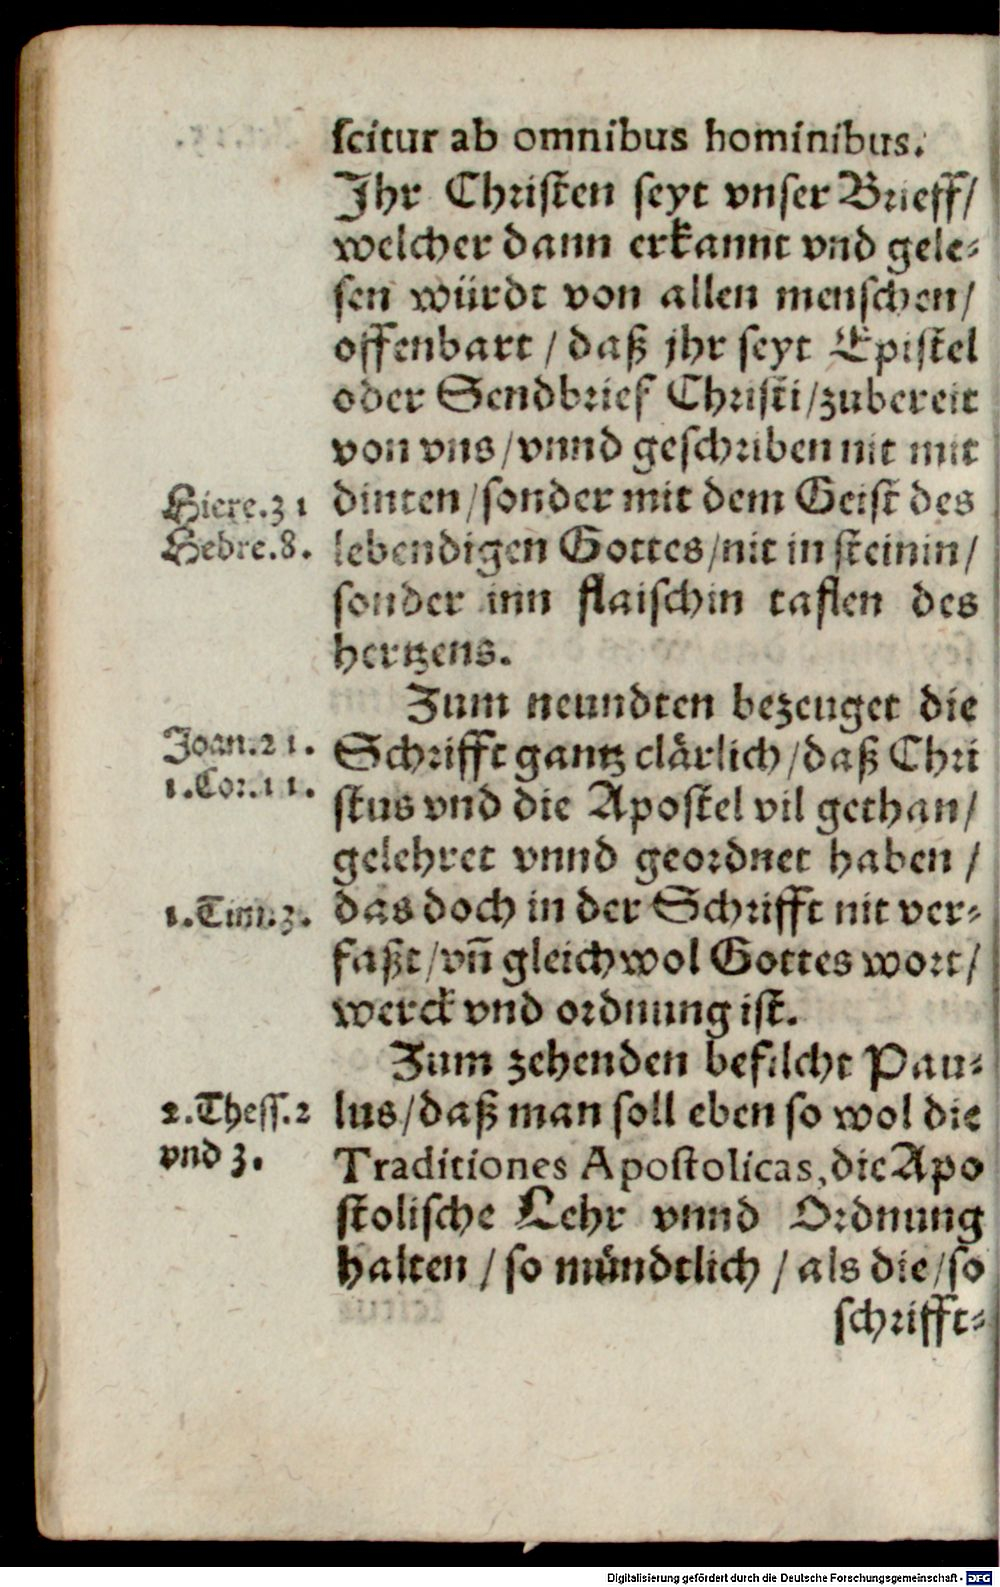 scitur ab omnibus hominibus.
Jhr Christen seyt vnser Brieff/
welcher dann erkannt vnd gele⸗
sen würdt von allen menschen/
offenbart / daß jhr seyt Epistel
oder Sendbrief Christi/zubereit
von vns/vnnd geschriben nit mit
Hiere.31 dinten/sonder mit dem Geist des
Hebre.8. lebendigen Gottes/nit in steinin/
sonder inn flaischin taflen des
hertzens.
Zum neundten bezeuget die
Joan.21. Schrifft gantz clårlich/daß Chri
1.Cor.11. stus vnd die Apostel vil gethan/
gelehret vnnd geordnet haben /
1.Tim.3. das doch in der Schrifft nit ver⸗
faßt/vn̄ gleichwol Gottes wort/
werck vnd ordnung ist.
Zum zehenden befilcht Pau⸗
2.Thess.2 lus/daß man soll eben so wol die
vnd 3. Traditiones Apostolicas, die Apo
stolische Lehr vnnd Ordnung
halten / so můndtlich / als die/so
schrifft⸗
Digitalisierung gefördert durch die Deutsche Forschungsgemeinschaft - DFG